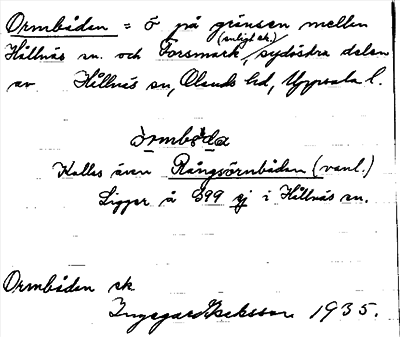 Ormbådan = ö på gränsen mellan
Hållnäs sn. och Forsmark (enligt ek.), sydöstra delen
av Hållnäs sn, Olands hd, Uppsala l.
ò̀rmbå̀da
Kallas även Rångsörnbådan (vanl.)
Ligger å 899 ej i Hållnäs sn.
Ormbådan ek
Ingegerd Isaksson 1935.